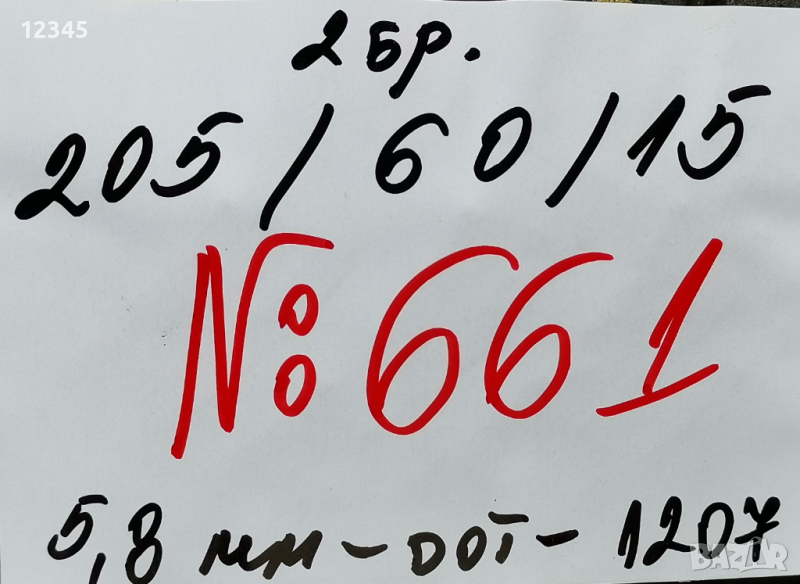 12345
2 бр.
205/60/15
№ 661
5,8 мм - DOT - 1207
BAZAR